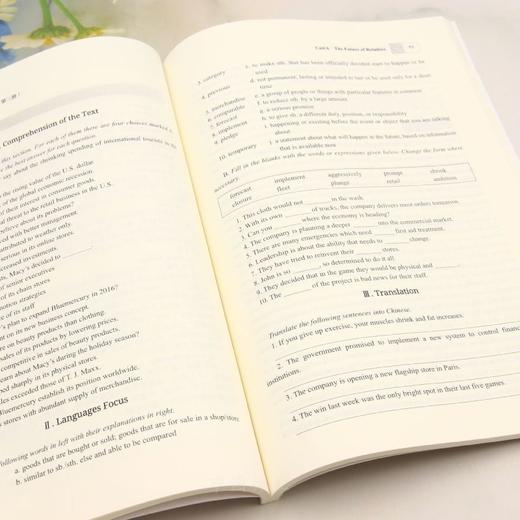 Comprehension of the Text
this section. For each of them there are four choices marked
the best answer for each question.
say about the shrinking spending of international tourists in the
the rising value of the U.S. dollar
of the global economic recession
of their interest in consumer goods
al threat to the retail business in the U.S.
believe about its problems?
ed with better management.
attributed to weather only.
serious in its online stores.
creased investments.
s, Macy's decided to ______.
of senior executives
of its chain stores
motion strategies
e of its staff
's plan to expand Bluemercury in 2016?
nt on its new business concept.
re on beauty products than clothing.
sales of its products by lowering prices.
competitive in sales of beauty products.
earn about Macy's during the holiday season?
ped sharply in its physical stores.
les exceeded those of T. J. Maxx.
Bluemercury establish its position worldwide.
s stores with abundant supply of merchandise.
Ⅱ. Languages Focus
following words in left with their explanations in right.
a. goods that are bought or sold; goods that are for sale in a shop/store
b. similar to sb./sth. else and able to be compared
Unit 6 The Future of Retailers
3. category c. to make sth. that has been officially decided start to happen or be
used
4. previous d. not permanent, lasting or intended to last or be used only for a short
time
5. merchandise e. a group of people or things with particular features in common
6. comparable f. to reduce sth. by a large amount
7. forecast g. a serious promise
8. implement h. to give sth. a different duty, position, or responsibility
9. pledge i. happening or existing before the event or object that you are talking
about
10. temporary j. a statement about what will happen in the future, based on information
that is available now
B. Fill in the blanks with the words or expressions given below. Change the form where
necessary.
forecast implement aggressively prompt shrink
closure fleet plunge retail ambition
1. This cloth would not ______ in the wash.
2. With its own ______ of trucks, the company delivers most orders tomorrow.
3. Can you ______ where the economy is heading?
4. The company is planning a deeper ______ into the commercial market.
5. There are many emergencies which need ______ first aid treatment.
6. Leadership is about the ability that needs to ______ change.
7. They have tried to reinvent their ______ stores.
8. John is so ______, so determined to do it all.
9. They decided that in the game they would be physical and ______.
10. The ______ of the project is bad news for their staff.
Ⅲ. Translation
Translate the following sentences into Chinese.
1. If you give up exercise, your muscles shrink and fat increases.
2. The government promised to implement a new system to control financial
institutions.
3. The company is opening a new flagship store in Paris.
4. The win last week was the only bright spot in their last five games.